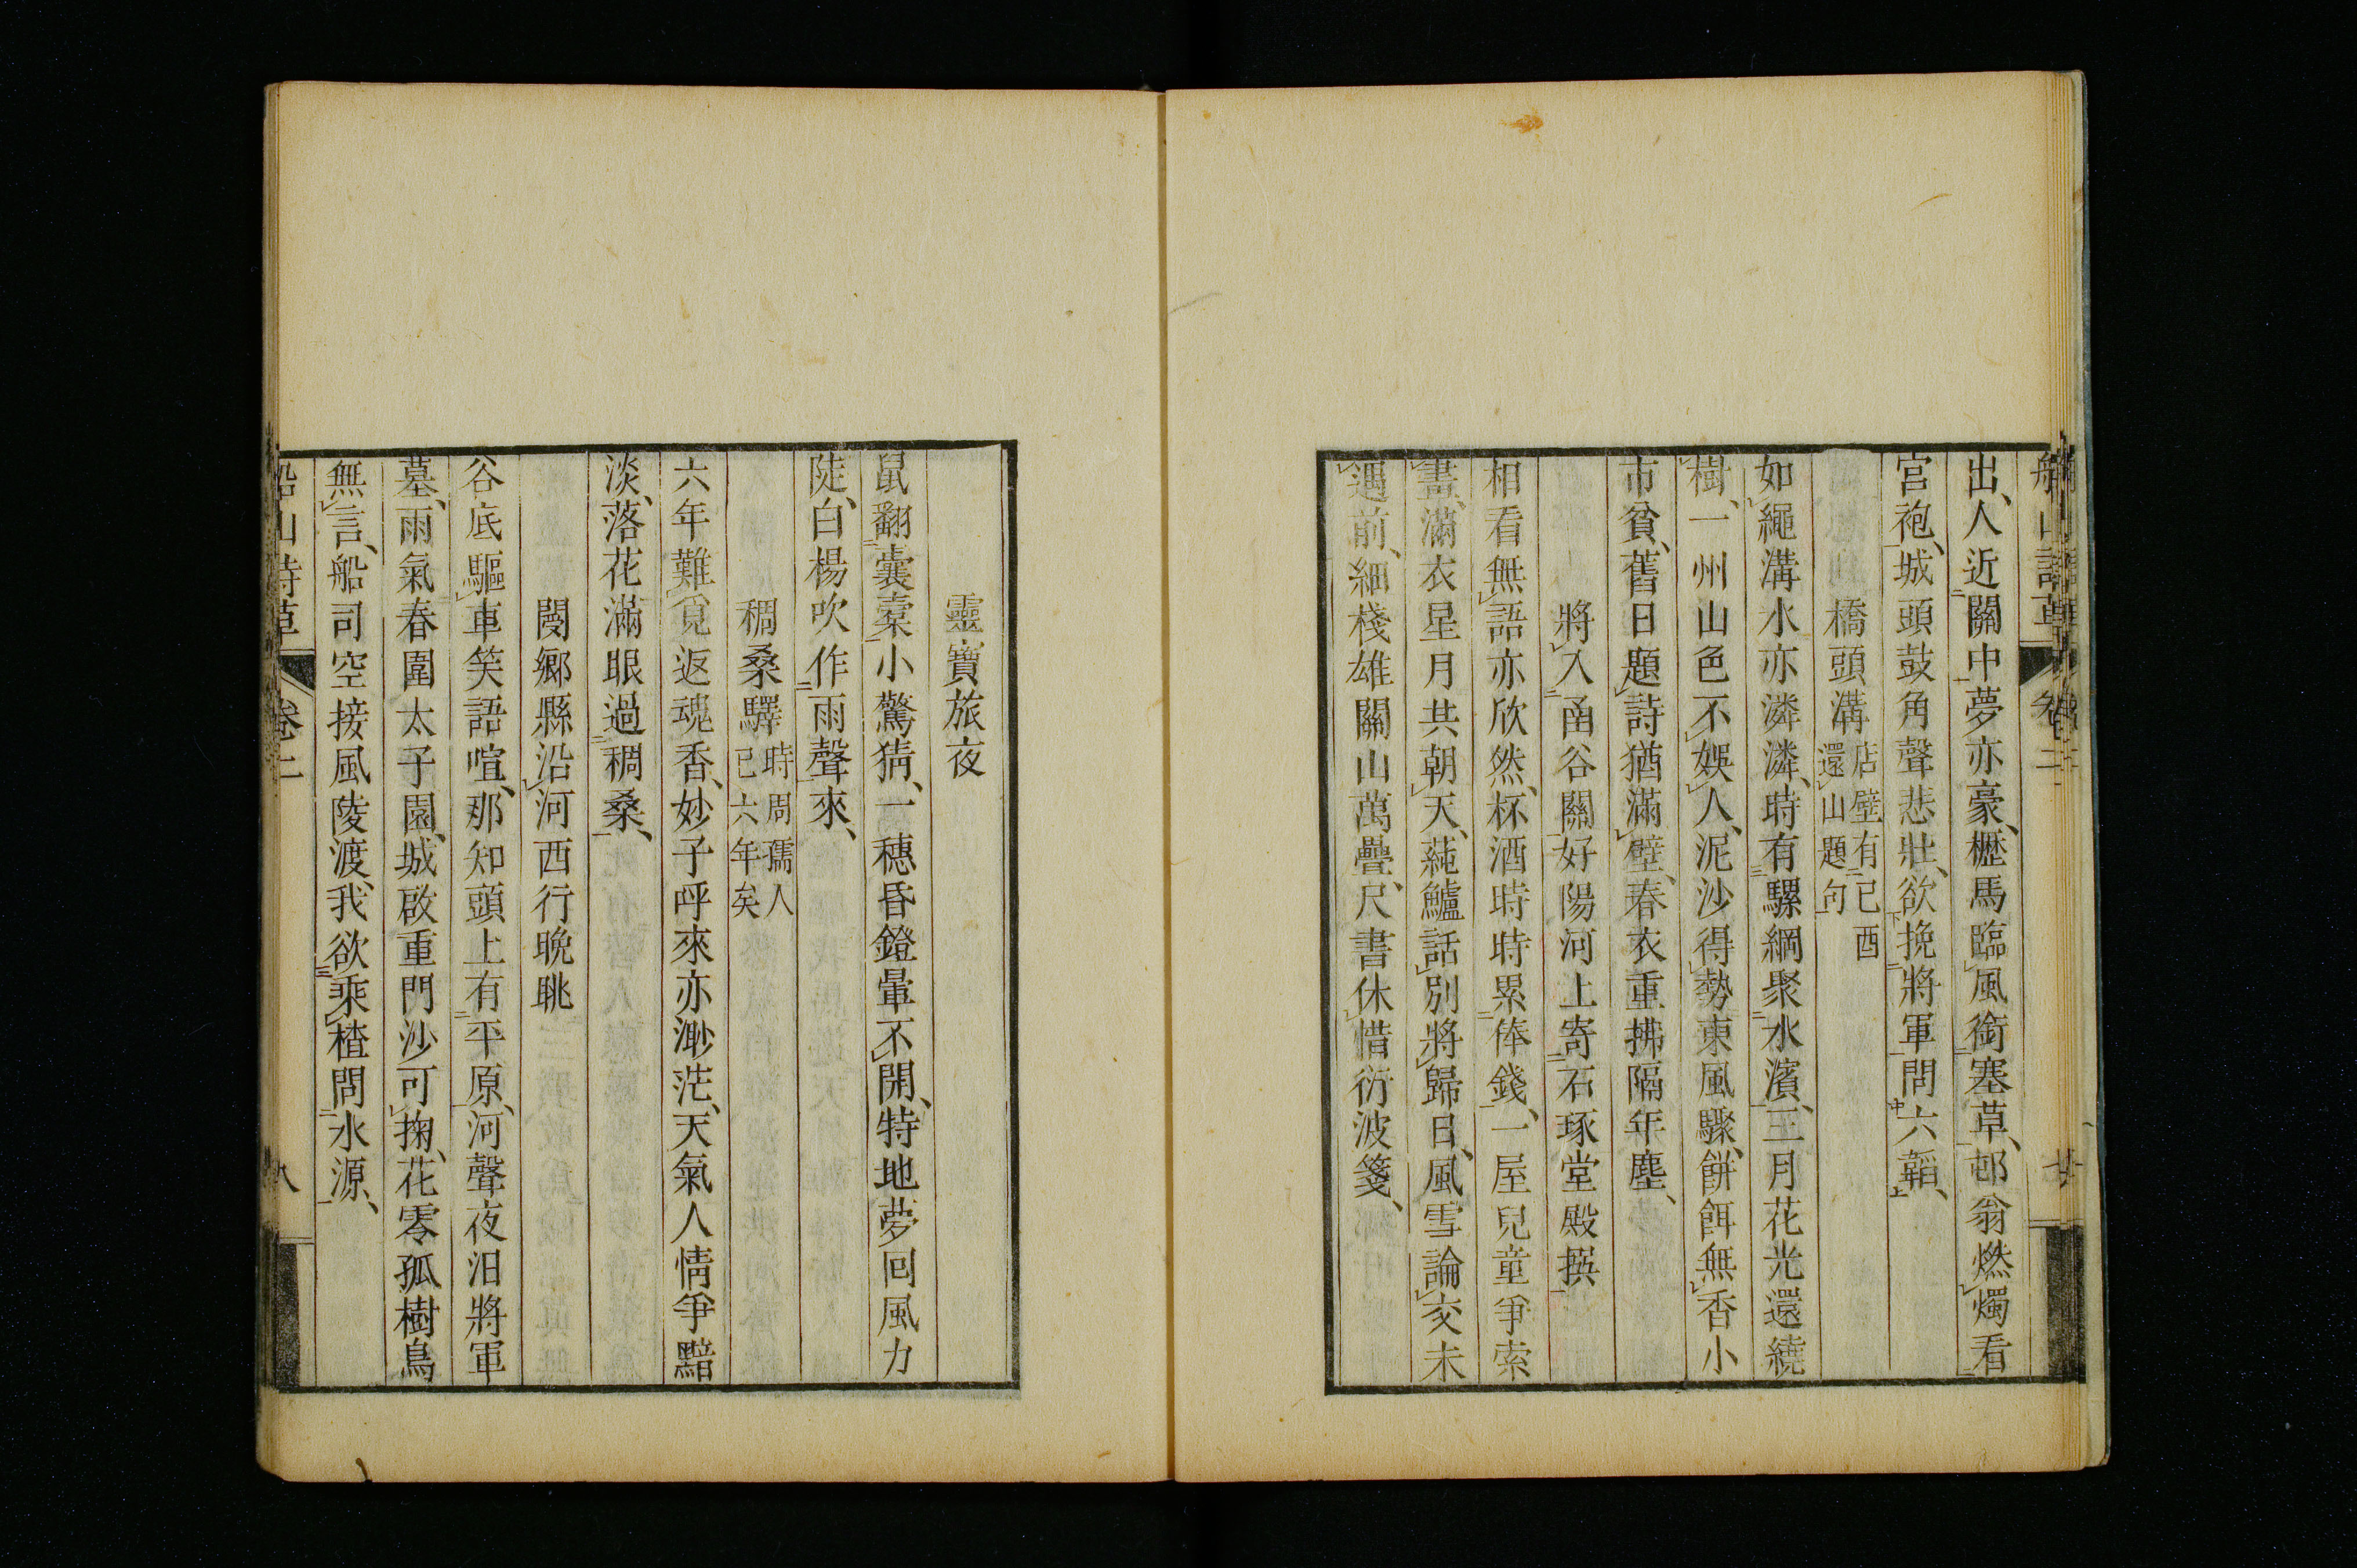 出、人近關中夢亦豪、櫪馬臨風銜塞草、邨翁燃燭看
宮袍、城頭鼓角聲悲壯、欲挽將軍問六韜、
橋頭溝店壁有己酉還山題句
如繩溝水亦潾潾、時有騾綱聚水濱、三月花光還繞
樹、一州山色不娛人、泥沙得勢東風驟、餅餌無香小
市貧、舊日題詩猶滿壁、春衣重拂隔年塵、
將入函谷關好陽河上寄石琢堂殿撰
相看無語亦欣然、杯酒時時累俸錢、一屋兒童爭索
畫、滿衣星月共朝天、蒓鱸話別將歸日、風雪論交未
遇前、細棧雄關山萬疊、尺書休惜衍波箋、
靈寶旅夜
鼠翻囊橐小驚猜、一穗昏鐙暈不開、特地夢回風力
陡、白楊吹作雨聲來、
稠桑驛時周孺人已六年矣
六年難覓返魂香、妙子呼來亦渺茫、天氣人情爭黯
淡、落花滿眼過稠桑、
閿鄉縣沿河西行晚眺
谷底驅車笑語喧、那知頭上有平原、河聲夜汨將軍
墓、雨氣春圍太子園、城啟重門沙可掬、花零孤樹鳥
無言、船司空接風陵渡、我欲乘楂問水源、
船山詩草 卷二 八